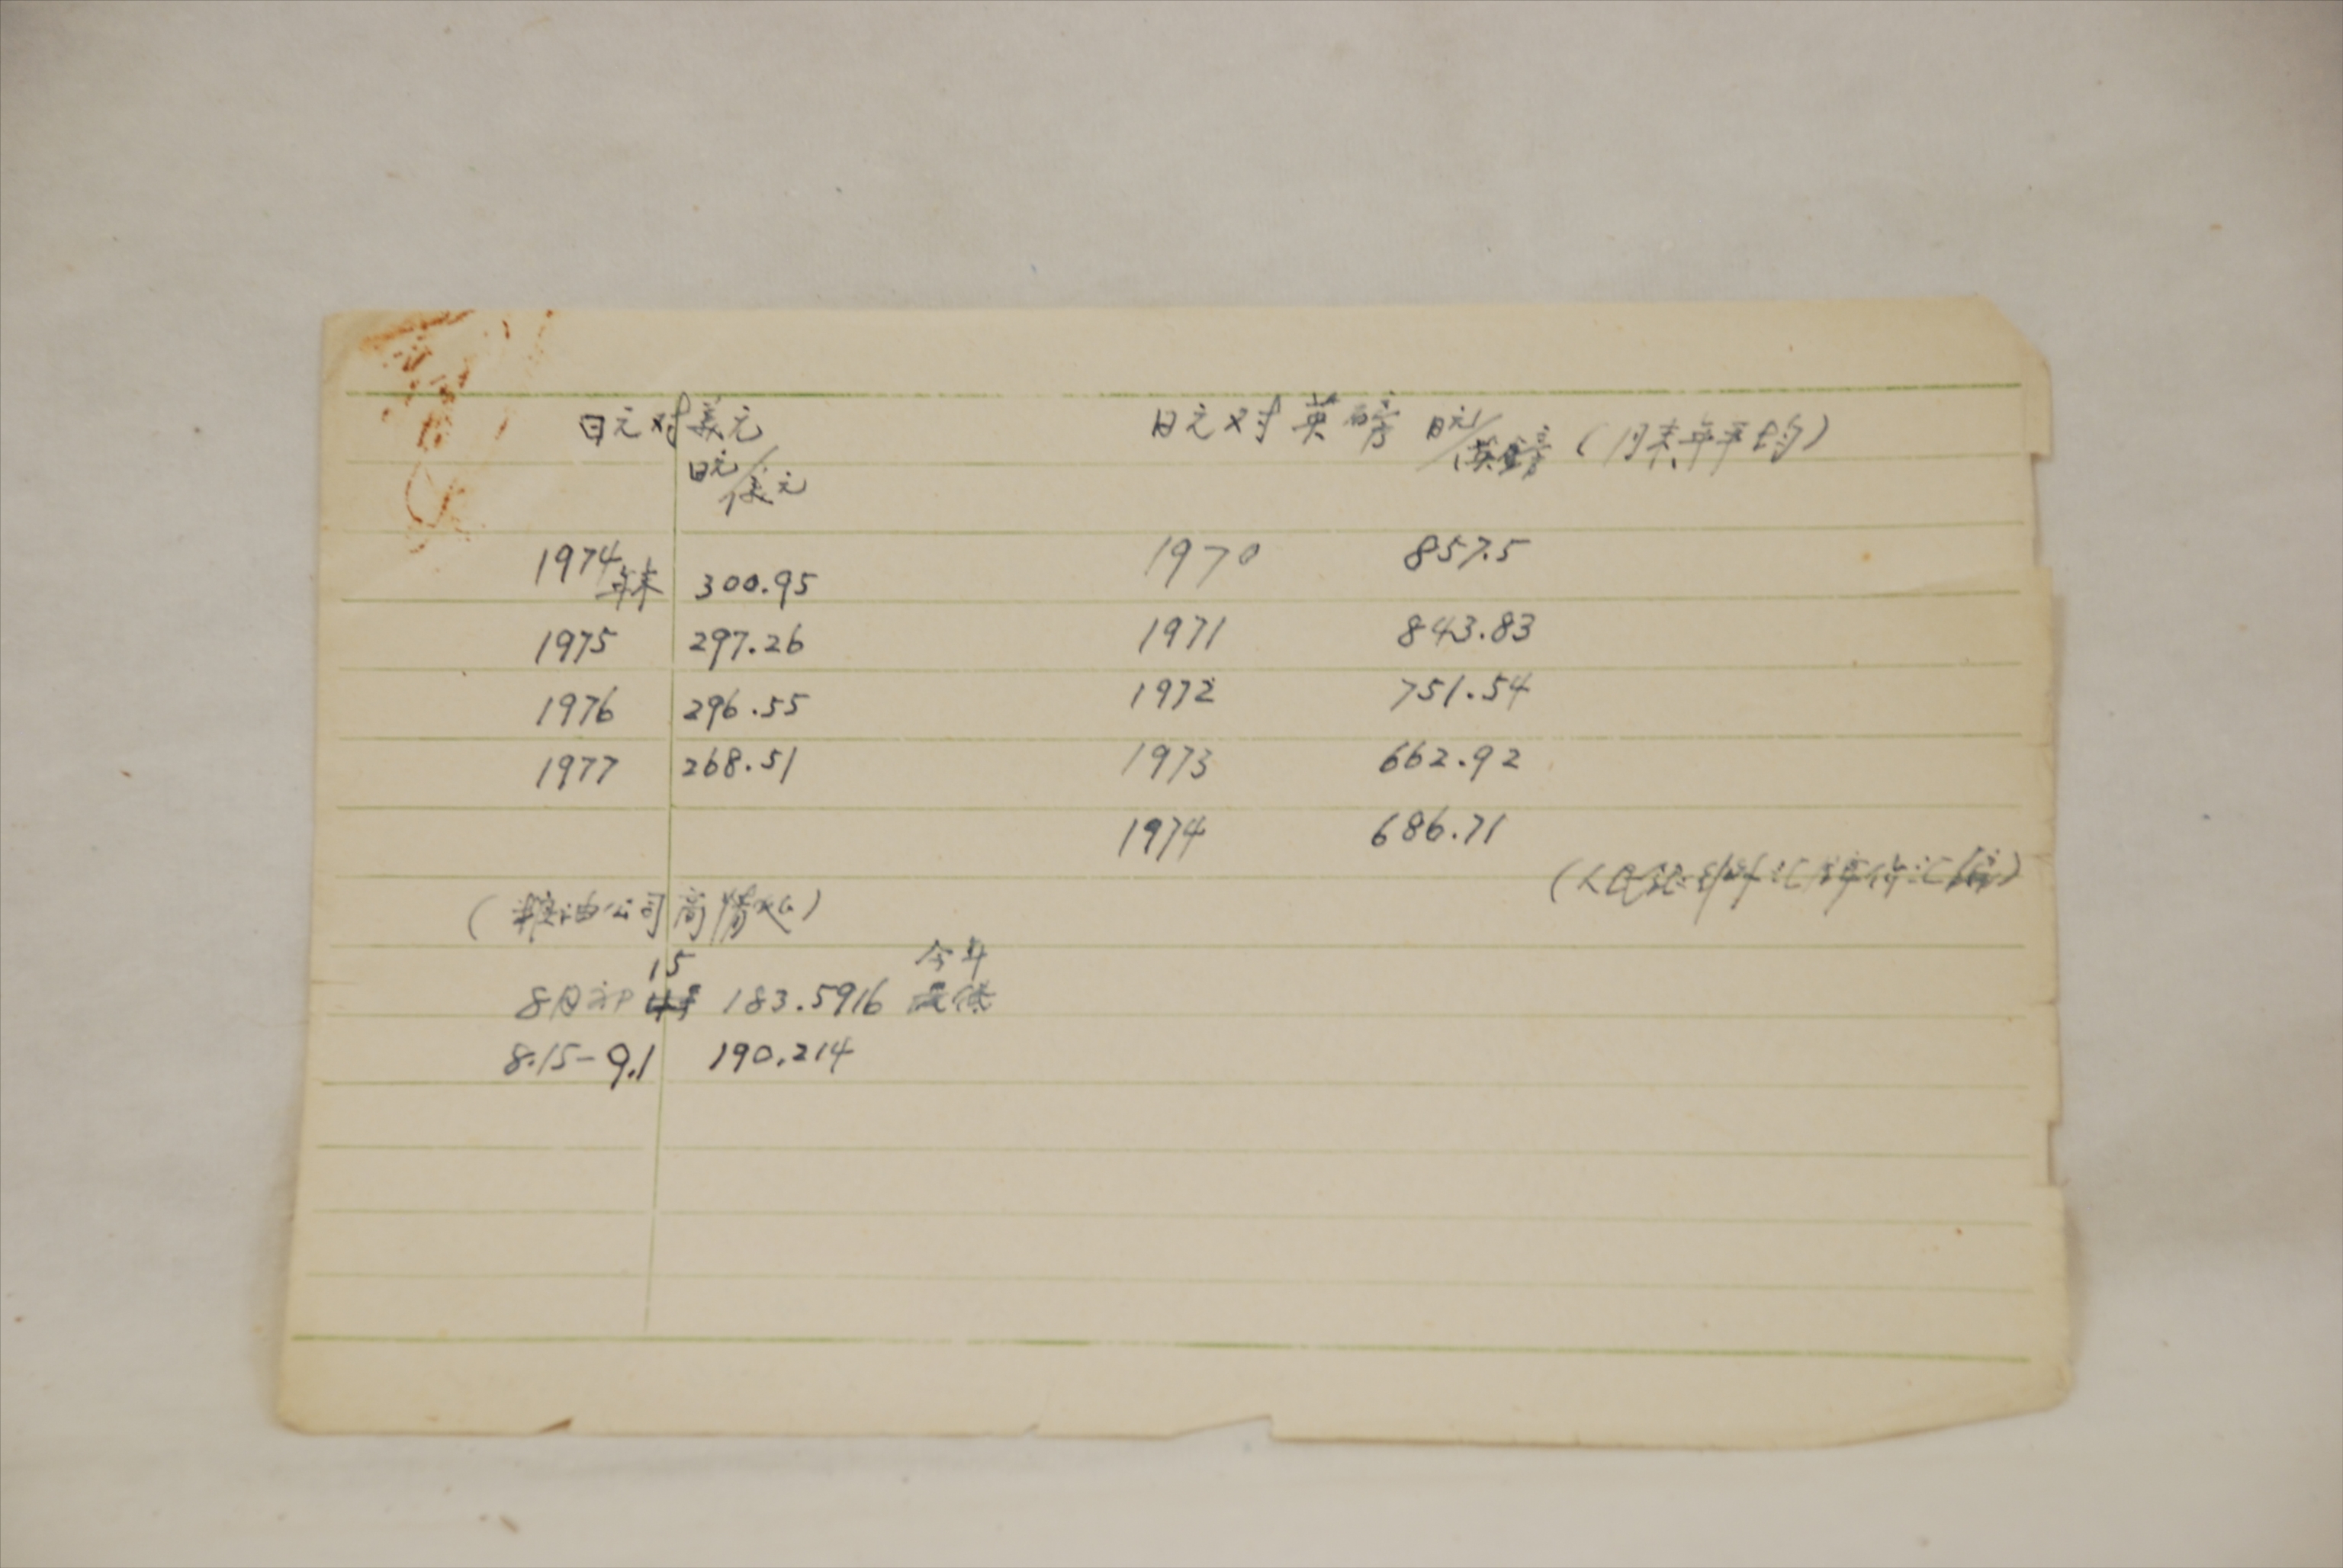 日元对美元
日元/美元
1974年末 300.95
1975 297.26
1976 296.55
1977 268.51
(粮油公司商情处)
15
8月初 183.5916 今年最低
8.15-9.1 190.214
日元对英磅 日元/英鎊(月末年平均)
1970 857.5
1971 843.83
1972 751.54
1973 662.92
1974 686.71
(人民银行外汇牌价汇编)